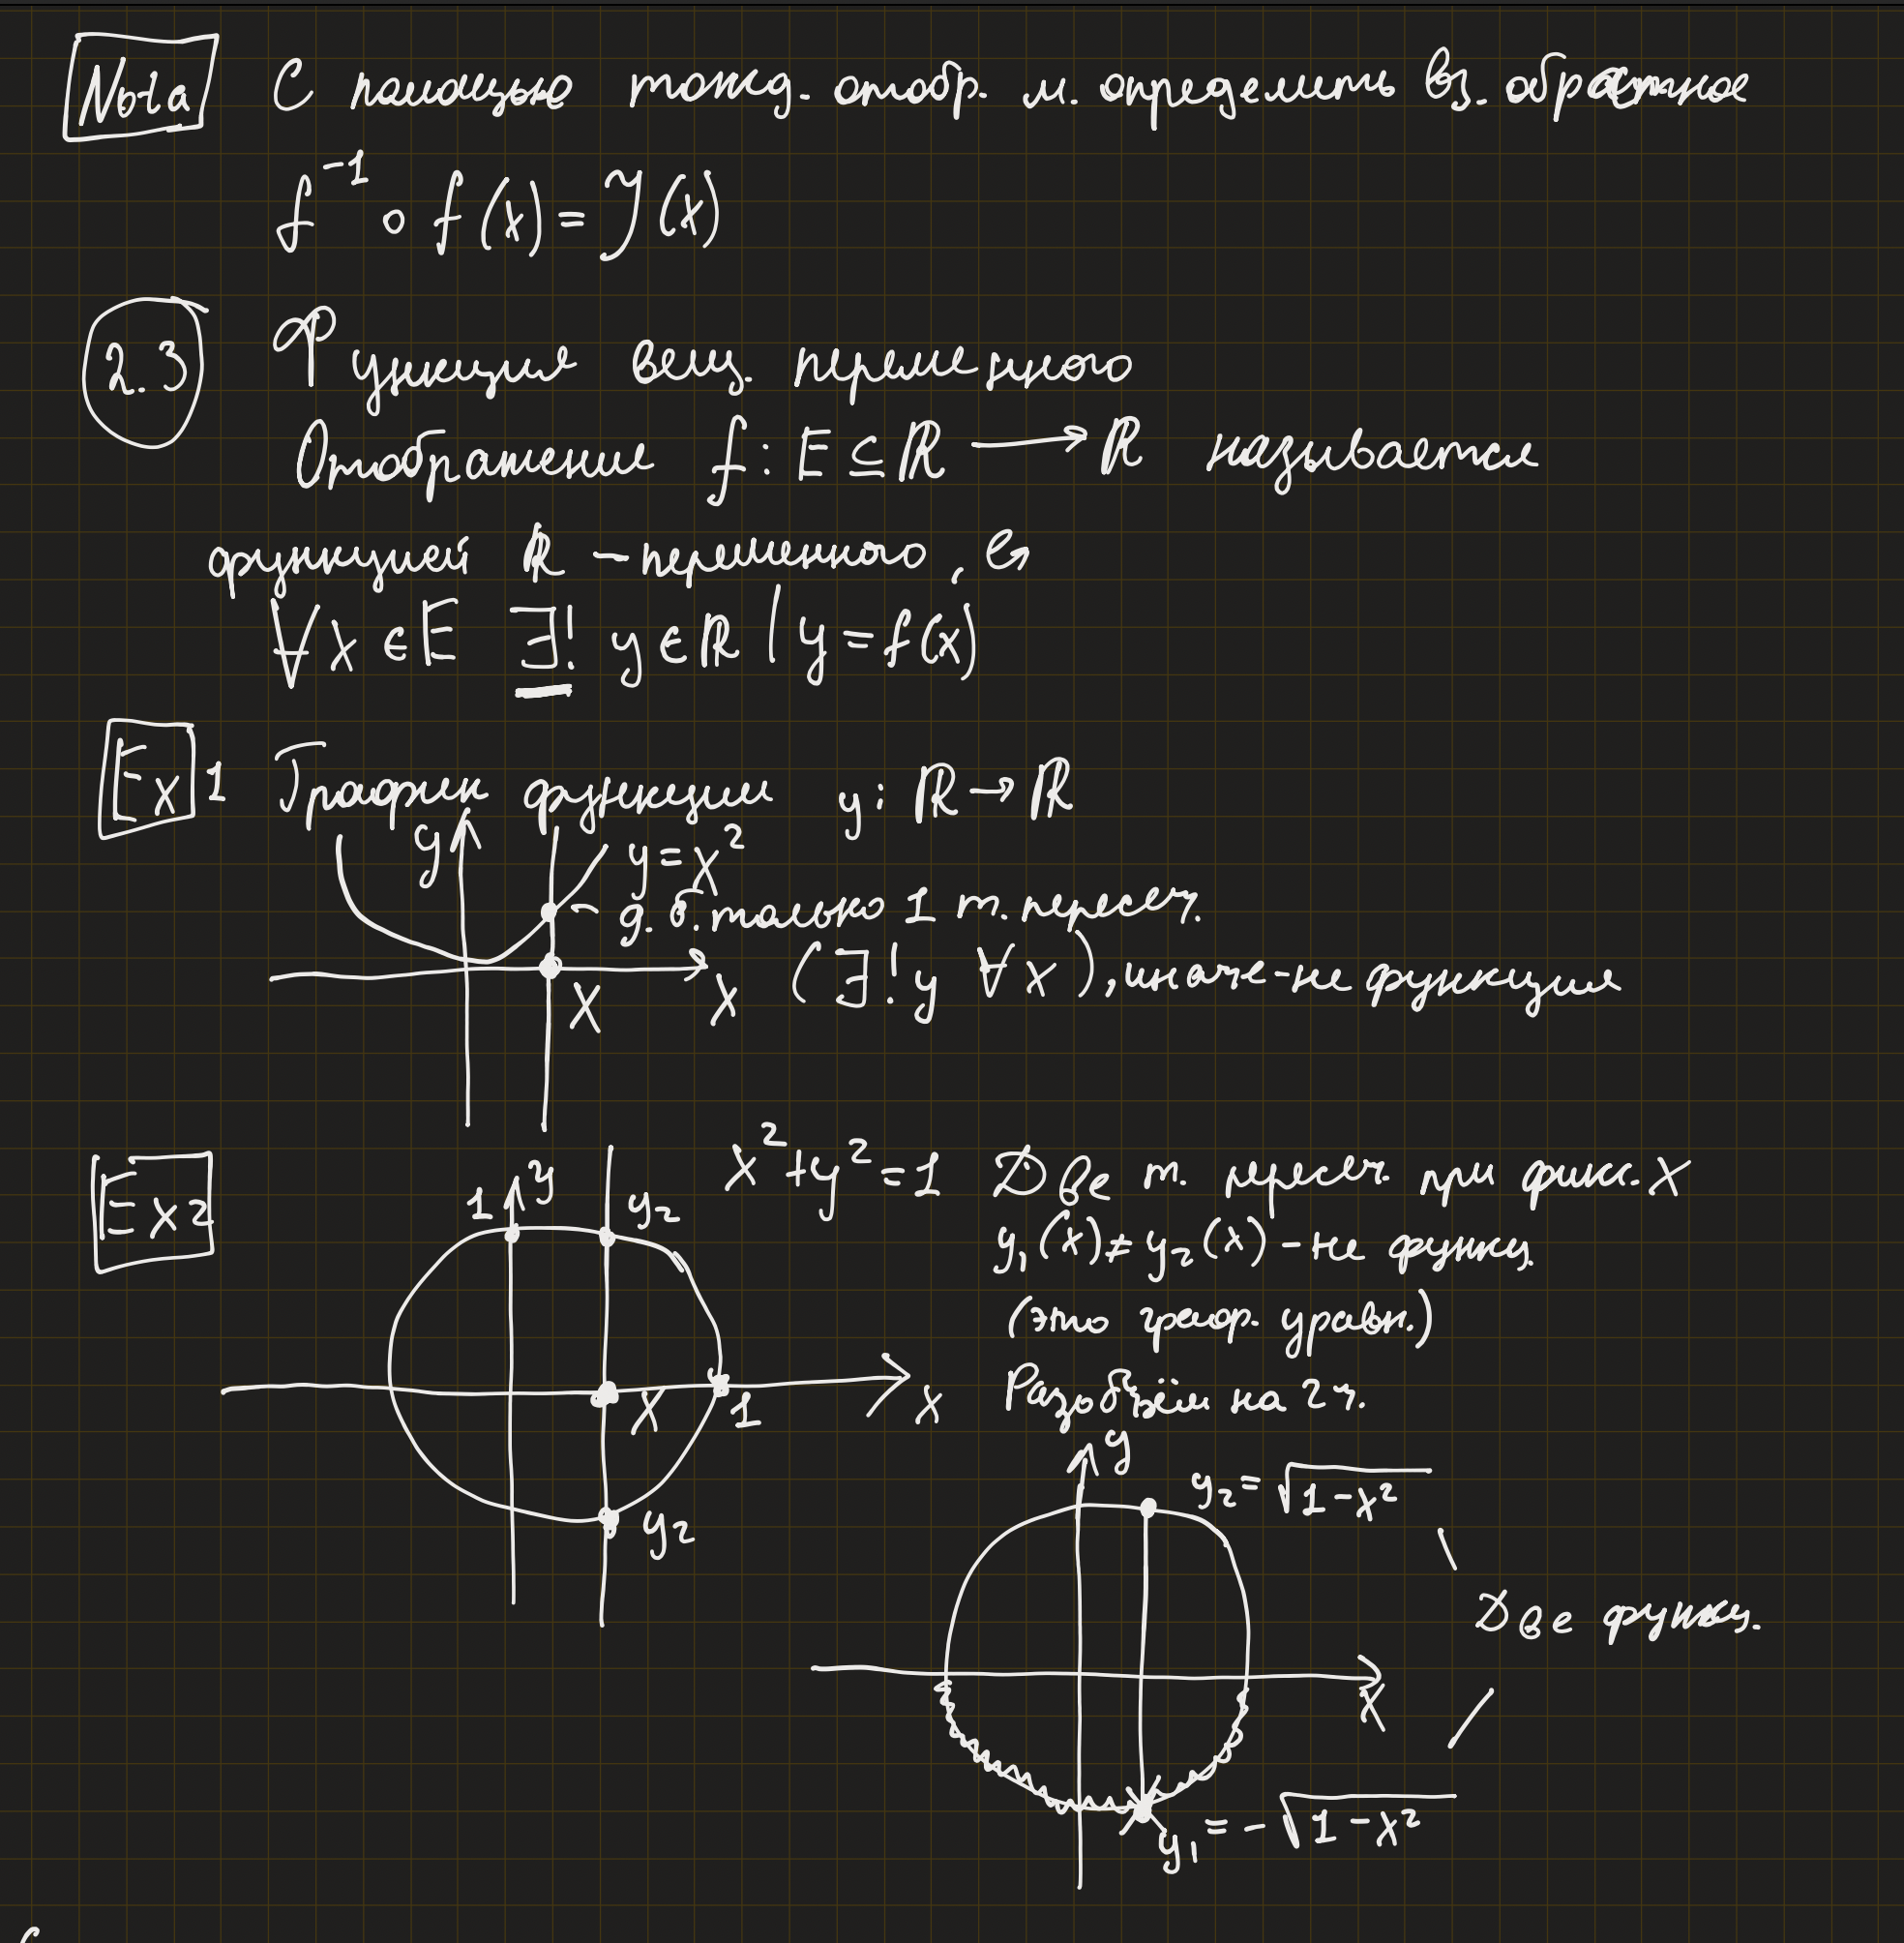 Nota С помощью тожд. отобр. м. определить вз. обратное
f⁻¹ ∘ f(x) = J(x)
2.3 Функция вещ. переменного
Отображение f: E ⊆ ℝ → ℝ называется
функцией ℝ - переменного,
∀x ∈ E ∃! y ∈ ℝ | y = f(x)
Ex 1 График функции y: ℝ → ℝ
y y = x²
д. б. только 1 т. пересеч.
x x (∃! y ∀x), иначе - не функция
Ex 2 x² + y² = 1 Две т. пересеч. при фикс. x
1 y y₂ y₁(x) ≠ y₂(x) - не функц.
(это граф. уравн.)
x 1 x Разобьём на 2 ч.
y y₂ = √1 - x²
y₂
Две функц.
x
y₁ = -√1 - x²